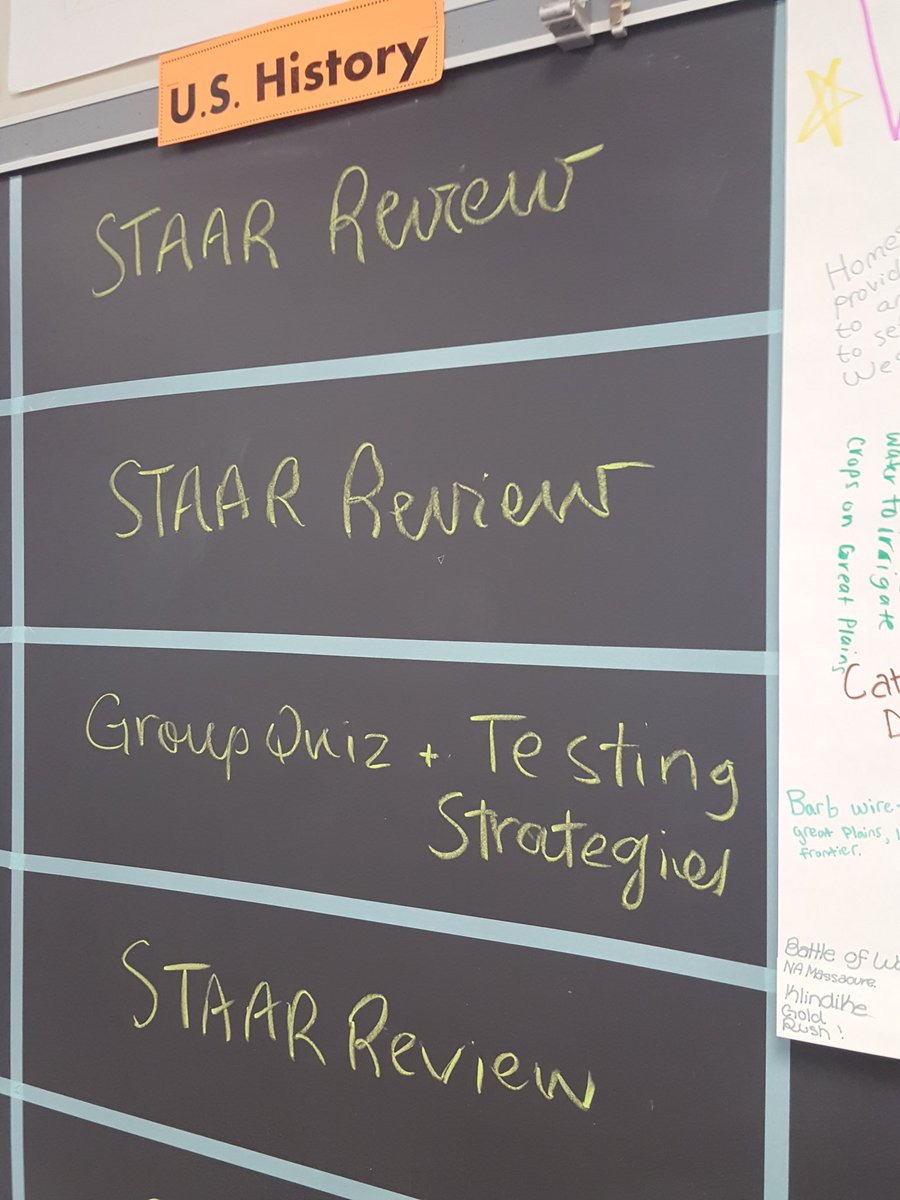 U.S. History
STAAR Review
STAAR Review
Group Quiz + Testing
Strategies
STAAR Review
to
to
water to irrigate
crops on Great Plains
Barb wire-
great Plains,
frontier.
Battle of
NA Massacure.
Klindike
Gold
Rush!